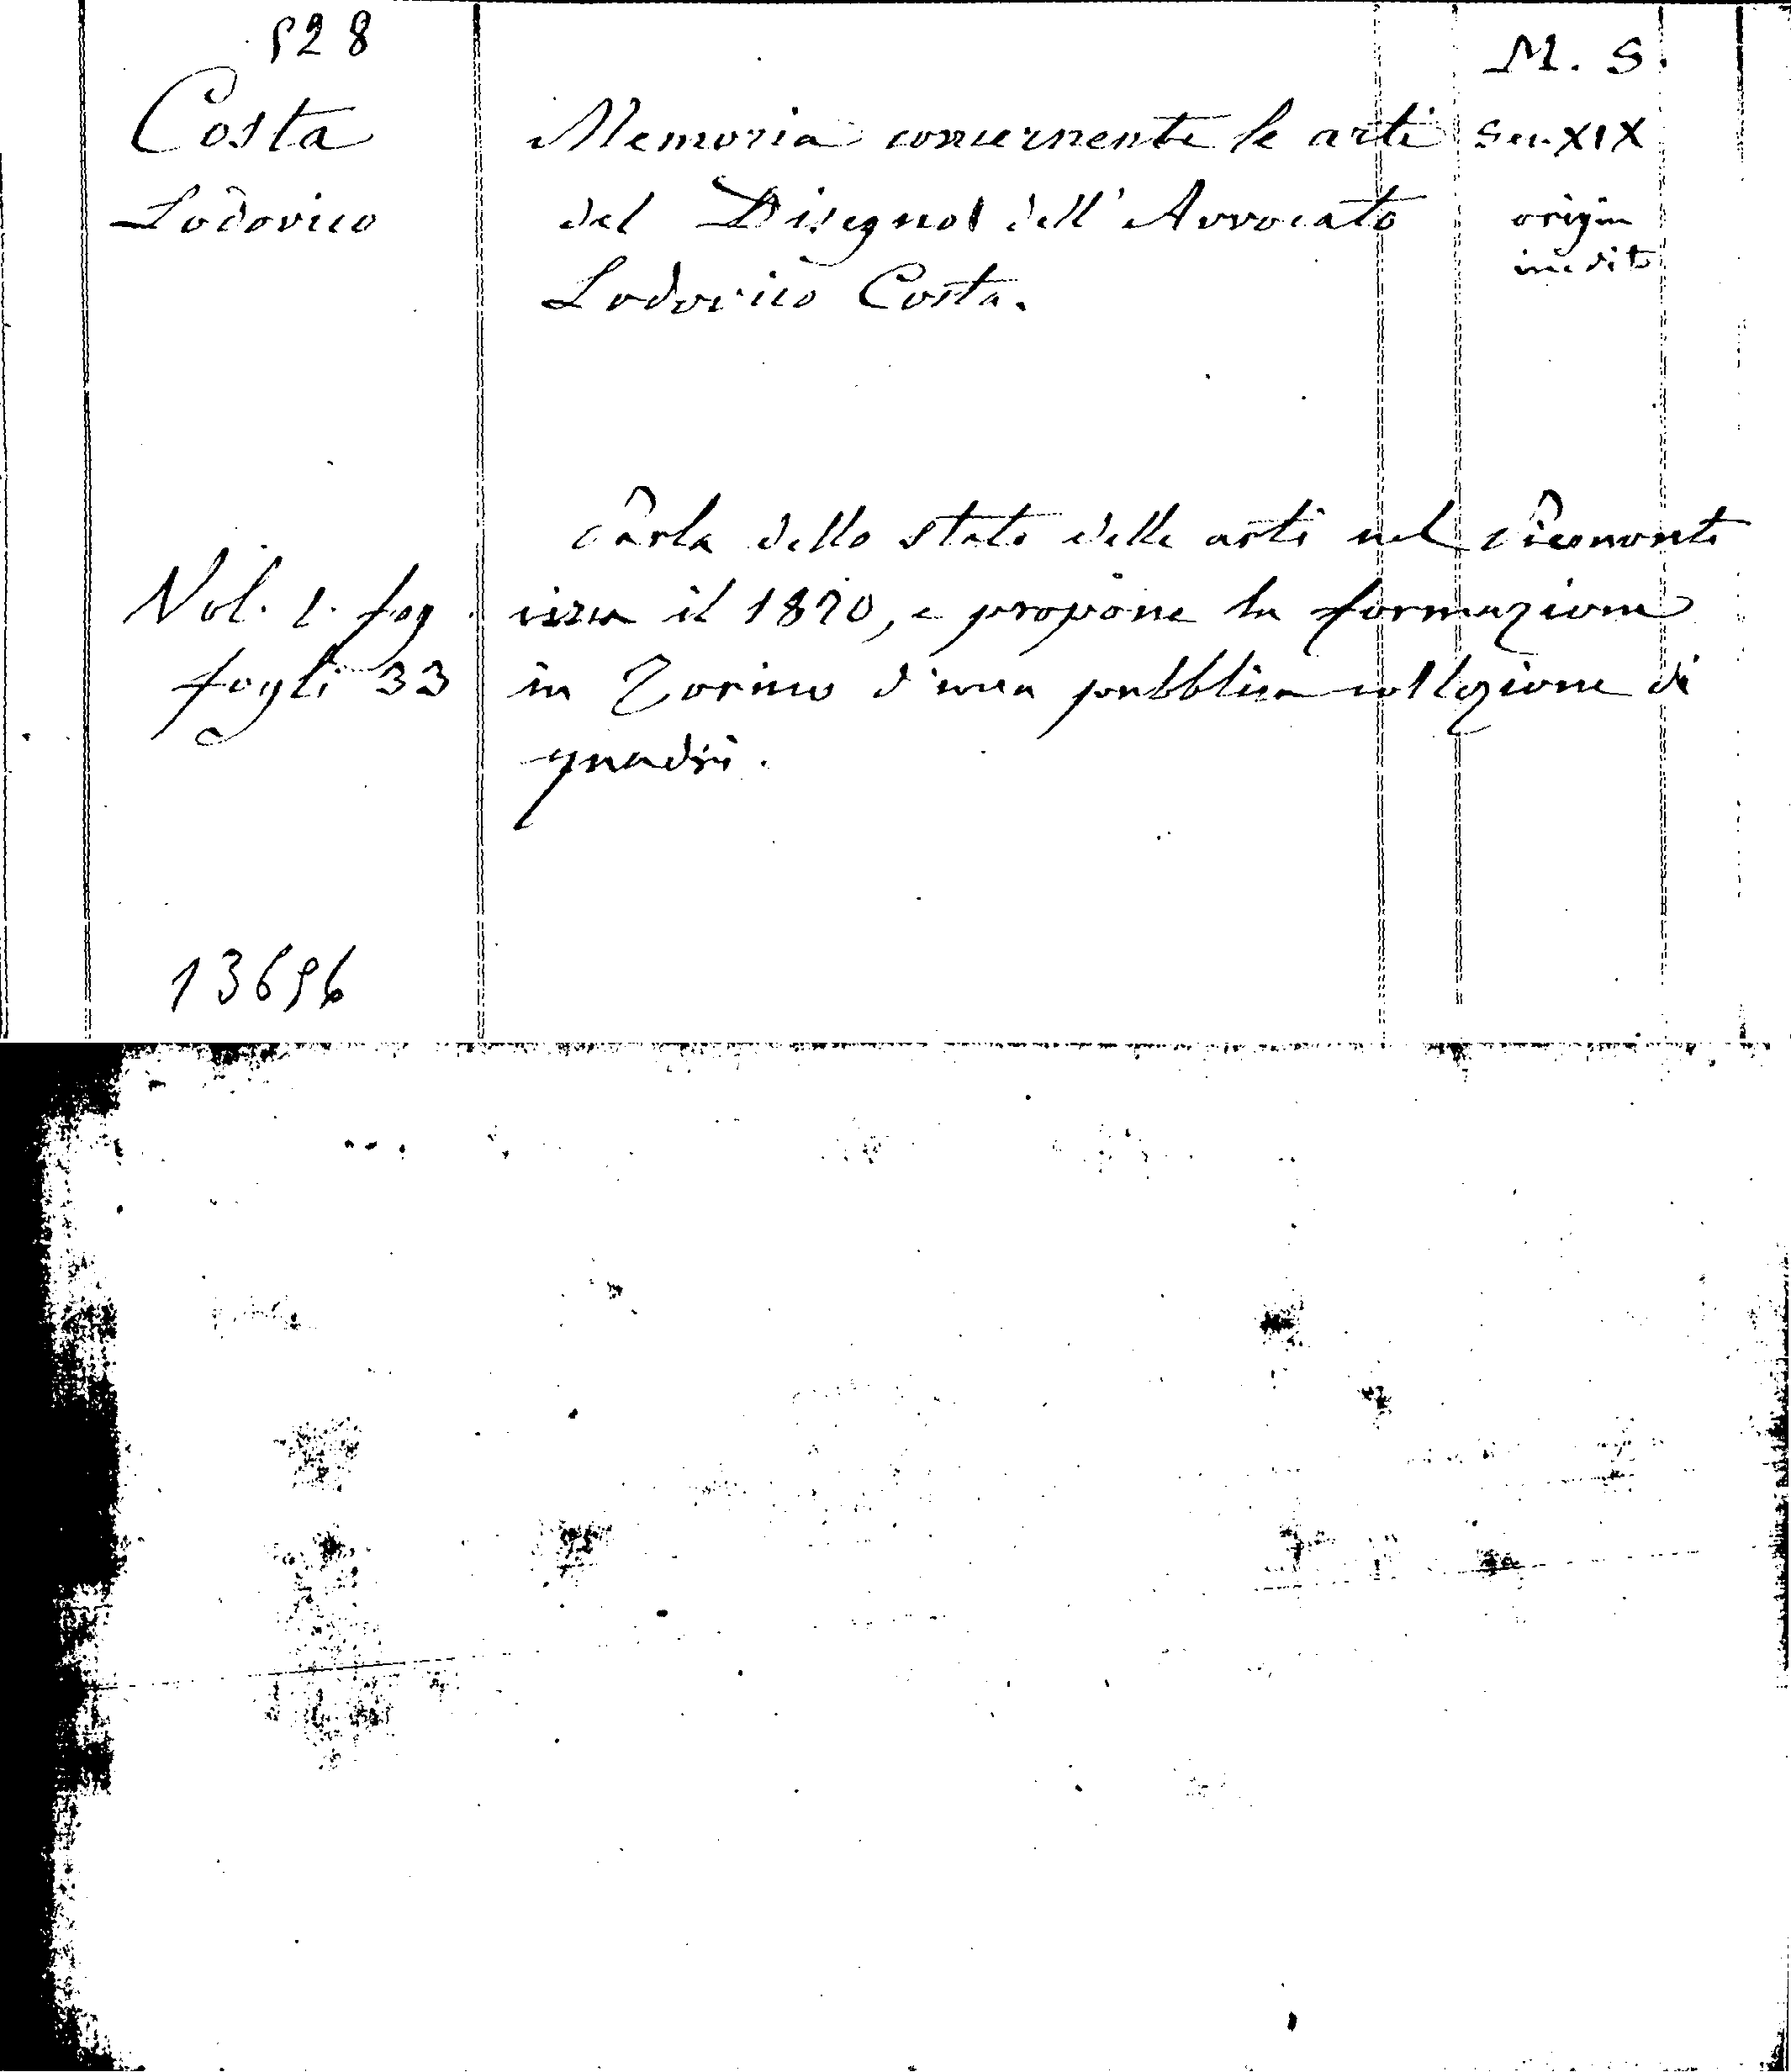 528
M. S.
Costa
Memoria concernente le arti
Sec. XIX
Lodovico
del Disegno dell' Avvocato
origin
inedito
Lodovico Costa.
Parla dello stato delle arti nel Piemonte
Vol. 1. fog.
circa il 1820, e propone la formazione
fogli 33
in Torino d'una pubblica collezione di
quadri.
13656